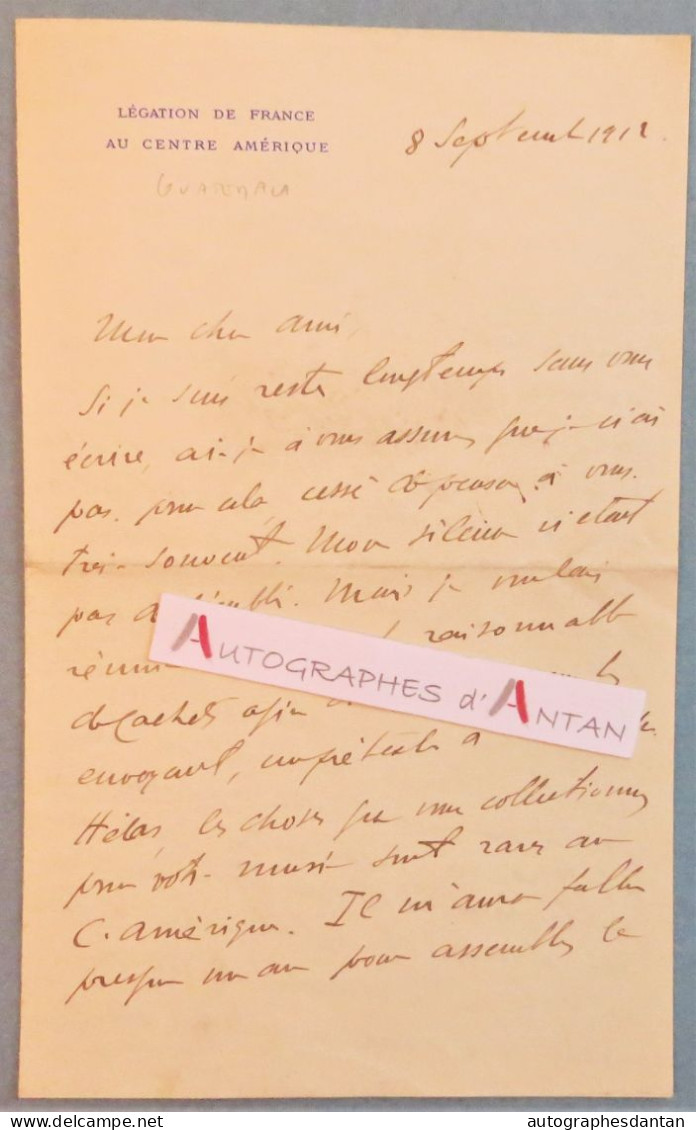 LÉGATION DE FRANCE
AU CENTRE AMÉRIQUE
GUATEMALA
8 Septembre 1912.
Mon cher ami,
Si je suis resté longtemps sans vous
écrire, ai-je à vous assurer que je n'ai
pas pour cela cessé de penser à vous
très souvent. Mon silence n'était
pas d'oubli. Mais je voulais
réunir raisonnable
de cachets afin
envoyant, un prétexte à
Hélas, les choses que vous collectionnez
pour votre musée sont rares au
C. Amérique. Il m'aura fallu
presque un an pour assembler le
AUTOGRAPHES d'ANTAN
delcampe.net
autographesdantan